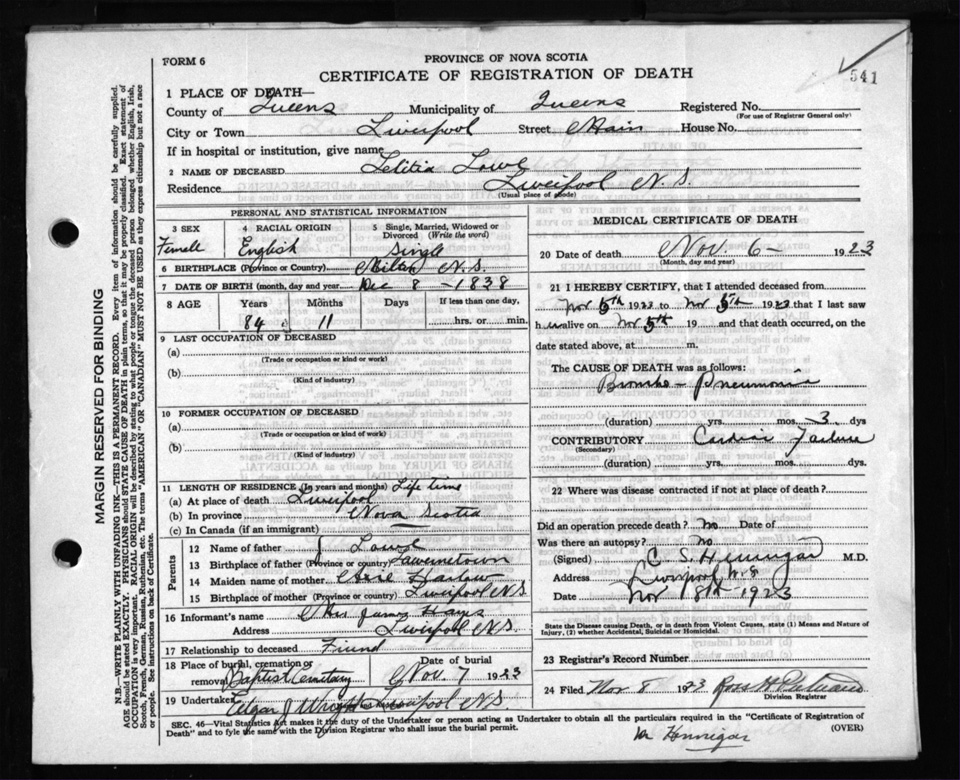 FORM 6
PROVINCE OF NOVA SCOTIA
CERTIFICATE OF REGISTRATION OF DEATH
541
1 PLACE OF DEATH—
County of Queens Municipality of Queens Registered No.
(For use of Registrar General only)
City or Town Liverpool Street Main House No.
If in hospital or institution, give name
2 NAME OF DECEASED Letitia Lowe
Residence Liverpool N.S.
(Usual place of abode)
PERSONAL AND STATISTICAL INFORMATION
3 SEX 4 RACIAL ORIGIN 5 Single, Married, Widowed or Divorced (Write the word)
Femell English Single
6 BIRTHPLACE (Province or Country) Milton N.S.
7 DATE OF BIRTH (month, day and year) Dec 8 - 1838
8 AGE Years Months Days If less than one day,
84 11 hrs. or min.
9 LAST OCCUPATION OF DECEASED
(a)
(Trade or occupation or kind or work)
(b)
(Kind of industry)
10 FORMER OCCUPATION OF DECEASED
(a)
(Trade or occupation or kind of work)
(b)
(Kind of industry)
11 LENGTH OF RESIDENCE (In years and months) Life time
(a) At place of death Liverpool
(b) In province Nova Scotia
(c) In Canada (if an immigrant)
Parents
12 Name of father J Lowe
13 Birthplace of father (Province or country)
14 Maiden name of mother
15 Birthplace of mother (Province or country) Liverpool N.S.
16 Informant's name Mrs James Hays
Address Liverpool N.S.
17 Relationship to deceased Friend
18 Place of burial, cremation or removal Baptist Cemetary Date of burial Nov 7 1923
19 Undertaker Edgar J Wright Liverpool N.S.
MEDICAL CERTIFICATE OF DEATH
20 Date of death Nov 6 - 1923
(Month, day and year)
21 I HEREBY CERTIFY, that I attended deceased from
Nov 5th 1923 to Nov 5th 1923 that I last saw
h er alive on Nov 5th 19 and that death occurred, on the
date stated above, at m.
The CAUSE OF DEATH was as follows:
Broncho - Pneumonia
(duration) yrs. mos. 3 dys
CONTRIBUTORY Cardiac Failure
(Secondary)
(duration) yrs. mos. dys.
22 Where was disease contracted if not at place of death?
Did an operation precede death? No Date of
Was there an autopsy? No
(Signed) C. S. Hennigar M.D.
Address Liverpool N.S
Date Nov 8th - 1923
State the Disease causing Death, or in death from Violent Causes, state (1) Means and Nature of Injury, (2) whether Accidental, Suicidal or Homicidal.
23 Registrar's Record Number
24 Filed Nov 8 1923 Ross H
Division Registrar
SEC. 46—Vital Statistics Act makes it the duty of the Undertaker or person acting as Undertaker to obtain all the particulars required in the "Certificate of Registration of
Death" and to fyle the same with the Division Registrar who shall issue the burial permit.
(OVER)
Dr Hennigar
MARGIN RESERVED FOR BINDING
N.B.—WRITE PLAINLY WITH UNFADING INK—THIS IS A PERMANENT RECORD. Every item of information should be carefully supplied.
AGE should be stated EXACTLY. PHYSICIANS should STATE CAUSE OF DEATH in plain terms, so that it may be properly classified. Exact statement of
OCCUPATION is very important. RACIAL ORIGIN will be described by stating to what people or tongue the deceased person belonged whether English, Irish,
Scotch, French, German, Russian, Ruthenian, etc. The terms "AMERICAN" or "CANADIAN" MUST NOT BE USED as they express citizenship but not a race
or people. See instructions on back of Certificate.